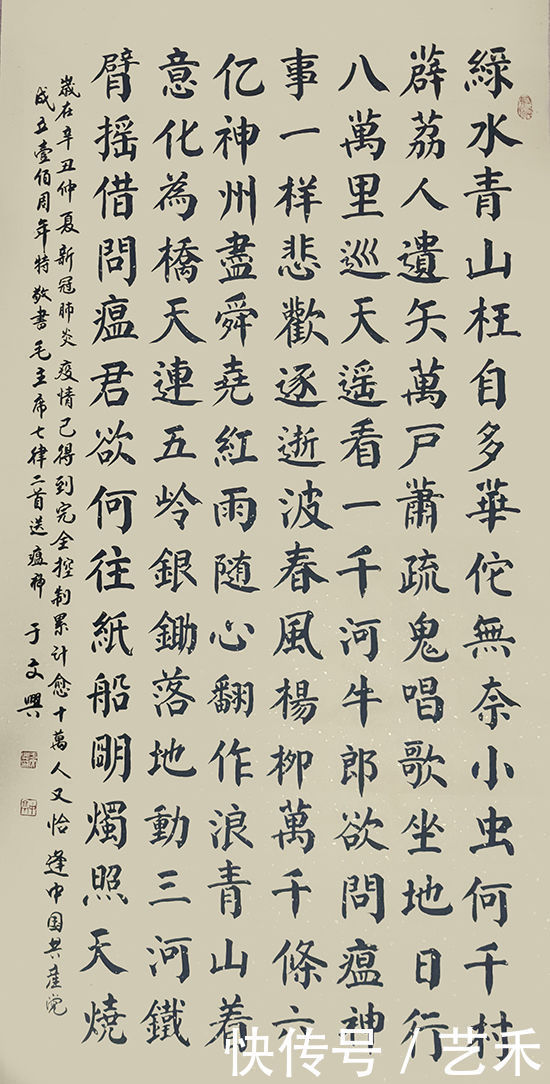 綠水青山枉自多華佗無奈小虫何千村
薜荔人遺矢萬戶蕭疏鬼唱歌坐地日行
八萬里巡天遥看一千河牛郎欲問瘟神
事一样悲歡逐逝波春風楊柳萬千條六
亿神州盡舜尭紅雨随心翻作浪青山着
意化為橋天連五岭銀鋤落地動三河鐵
臂摇借問瘟君欲何往紙船明燭照天燒
歲在辛丑仲夏新冠肺炎疫情已得到完全控制累计愈十萬人又恰逢中国共產党
成立壹佰周年特敬書毛主席七律二首送瘟神 于文興
快传号 / 艺禾